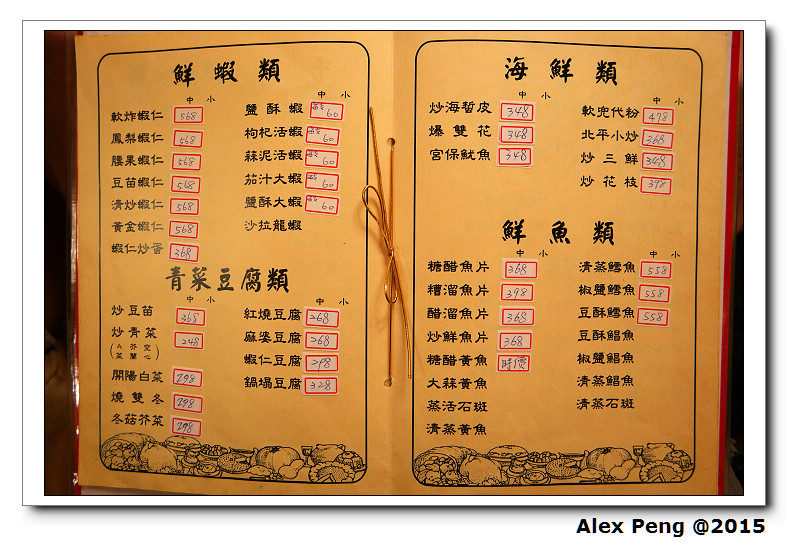 鮮蝦類
中 小
軟炸蝦仁 568
鳳梨蝦仁 568
腰果蝦仁 568
豆苗蝦仁 568
清炒蝦仁 568
黃金蝦仁 568
蝦仁炒蛋 368
中 小
鹽酥蝦 60
枸杞活蝦 60
蒜泥活蝦 60
茄汁大蝦 60
鹽酥大蝦 60
沙拉龍蝦
青菜豆腐類
中 小
炒豆苗 368
炒青菜 248
(A芥空
菜蘭心)
開陽白菜 298
燒雙冬 298
冬菇芥菜 298
中 小
紅燒豆腐 268
麻婆豆腐 268
蝦仁豆腐 298
鍋塌豆腐 328
海鮮類
中 小
炒海蜇皮 348
爆雙花 348
宮保魷魚 348
中 小
軟兜代粉 478
北平小炒 368
炒三鮮 348
炒花枝 398
鮮魚類
中 小
糖醋魚片 368
糟溜魚片 398
醋溜魚片 368
炒鮮魚片 368
糖醋黃魚 時價
大蒜黃魚
蒸活石斑
清蒸黃魚
中 小
清蒸鱈魚 558
椒鹽鱈魚 558
豆酥鱈魚 558
豆酥鯧魚
椒鹽鯧魚
清蒸鯧魚
清蒸石斑
Alex Peng @2015